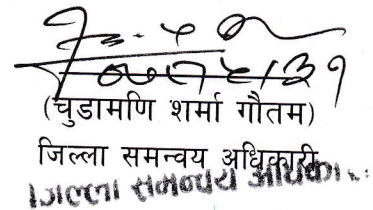 (चुडामणि शर्मा गौतम)
जिल्ला समन्वय अधिकारी
जिल्ला समन्वय अधिका